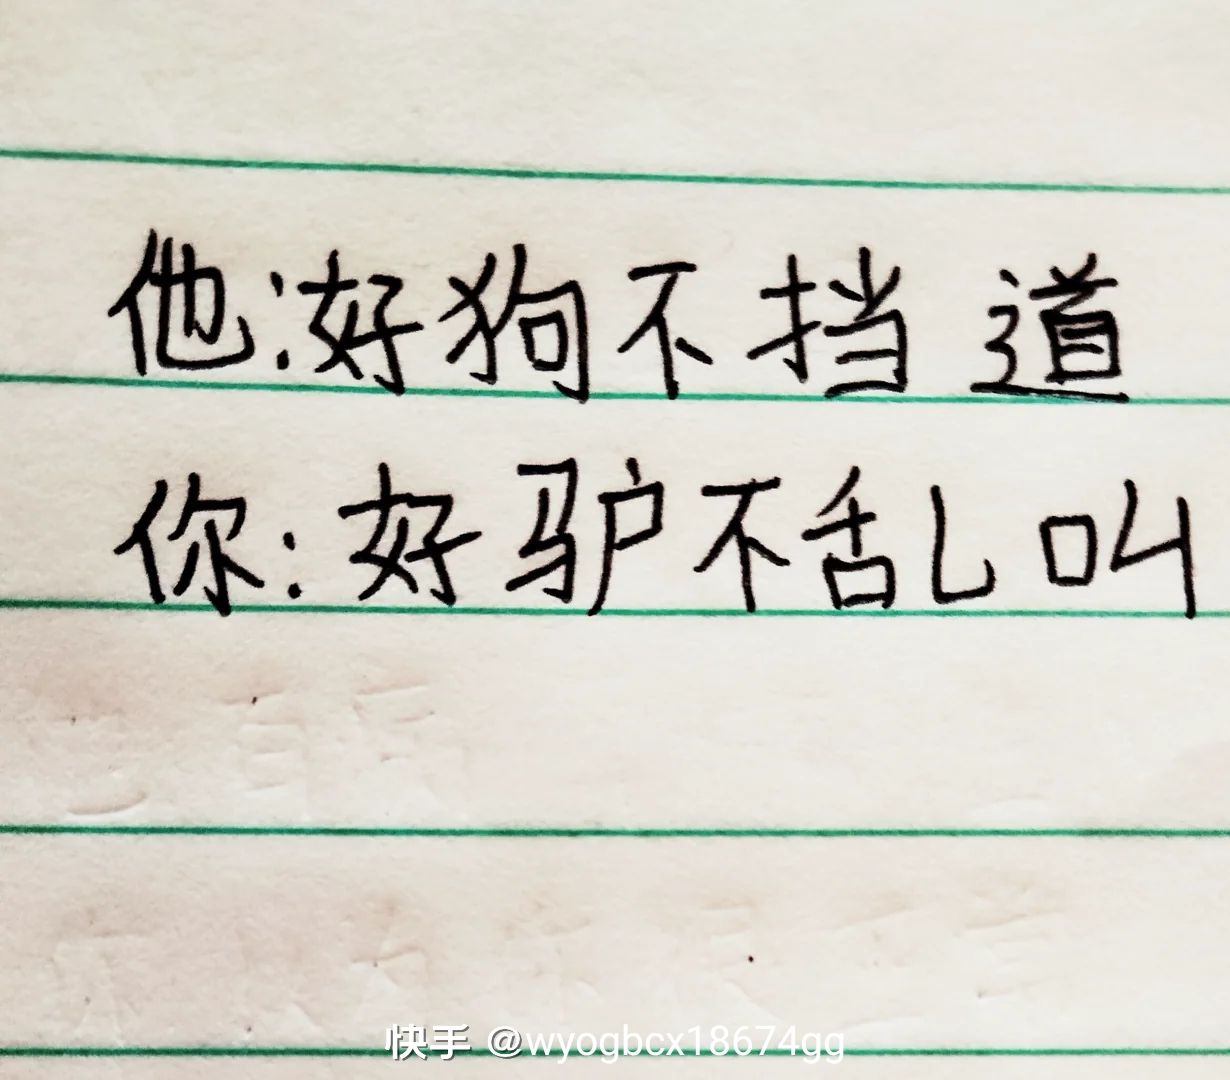 他:好狗不挡道
你:好驴不乱叫
快手 @wyogbcx18674gg